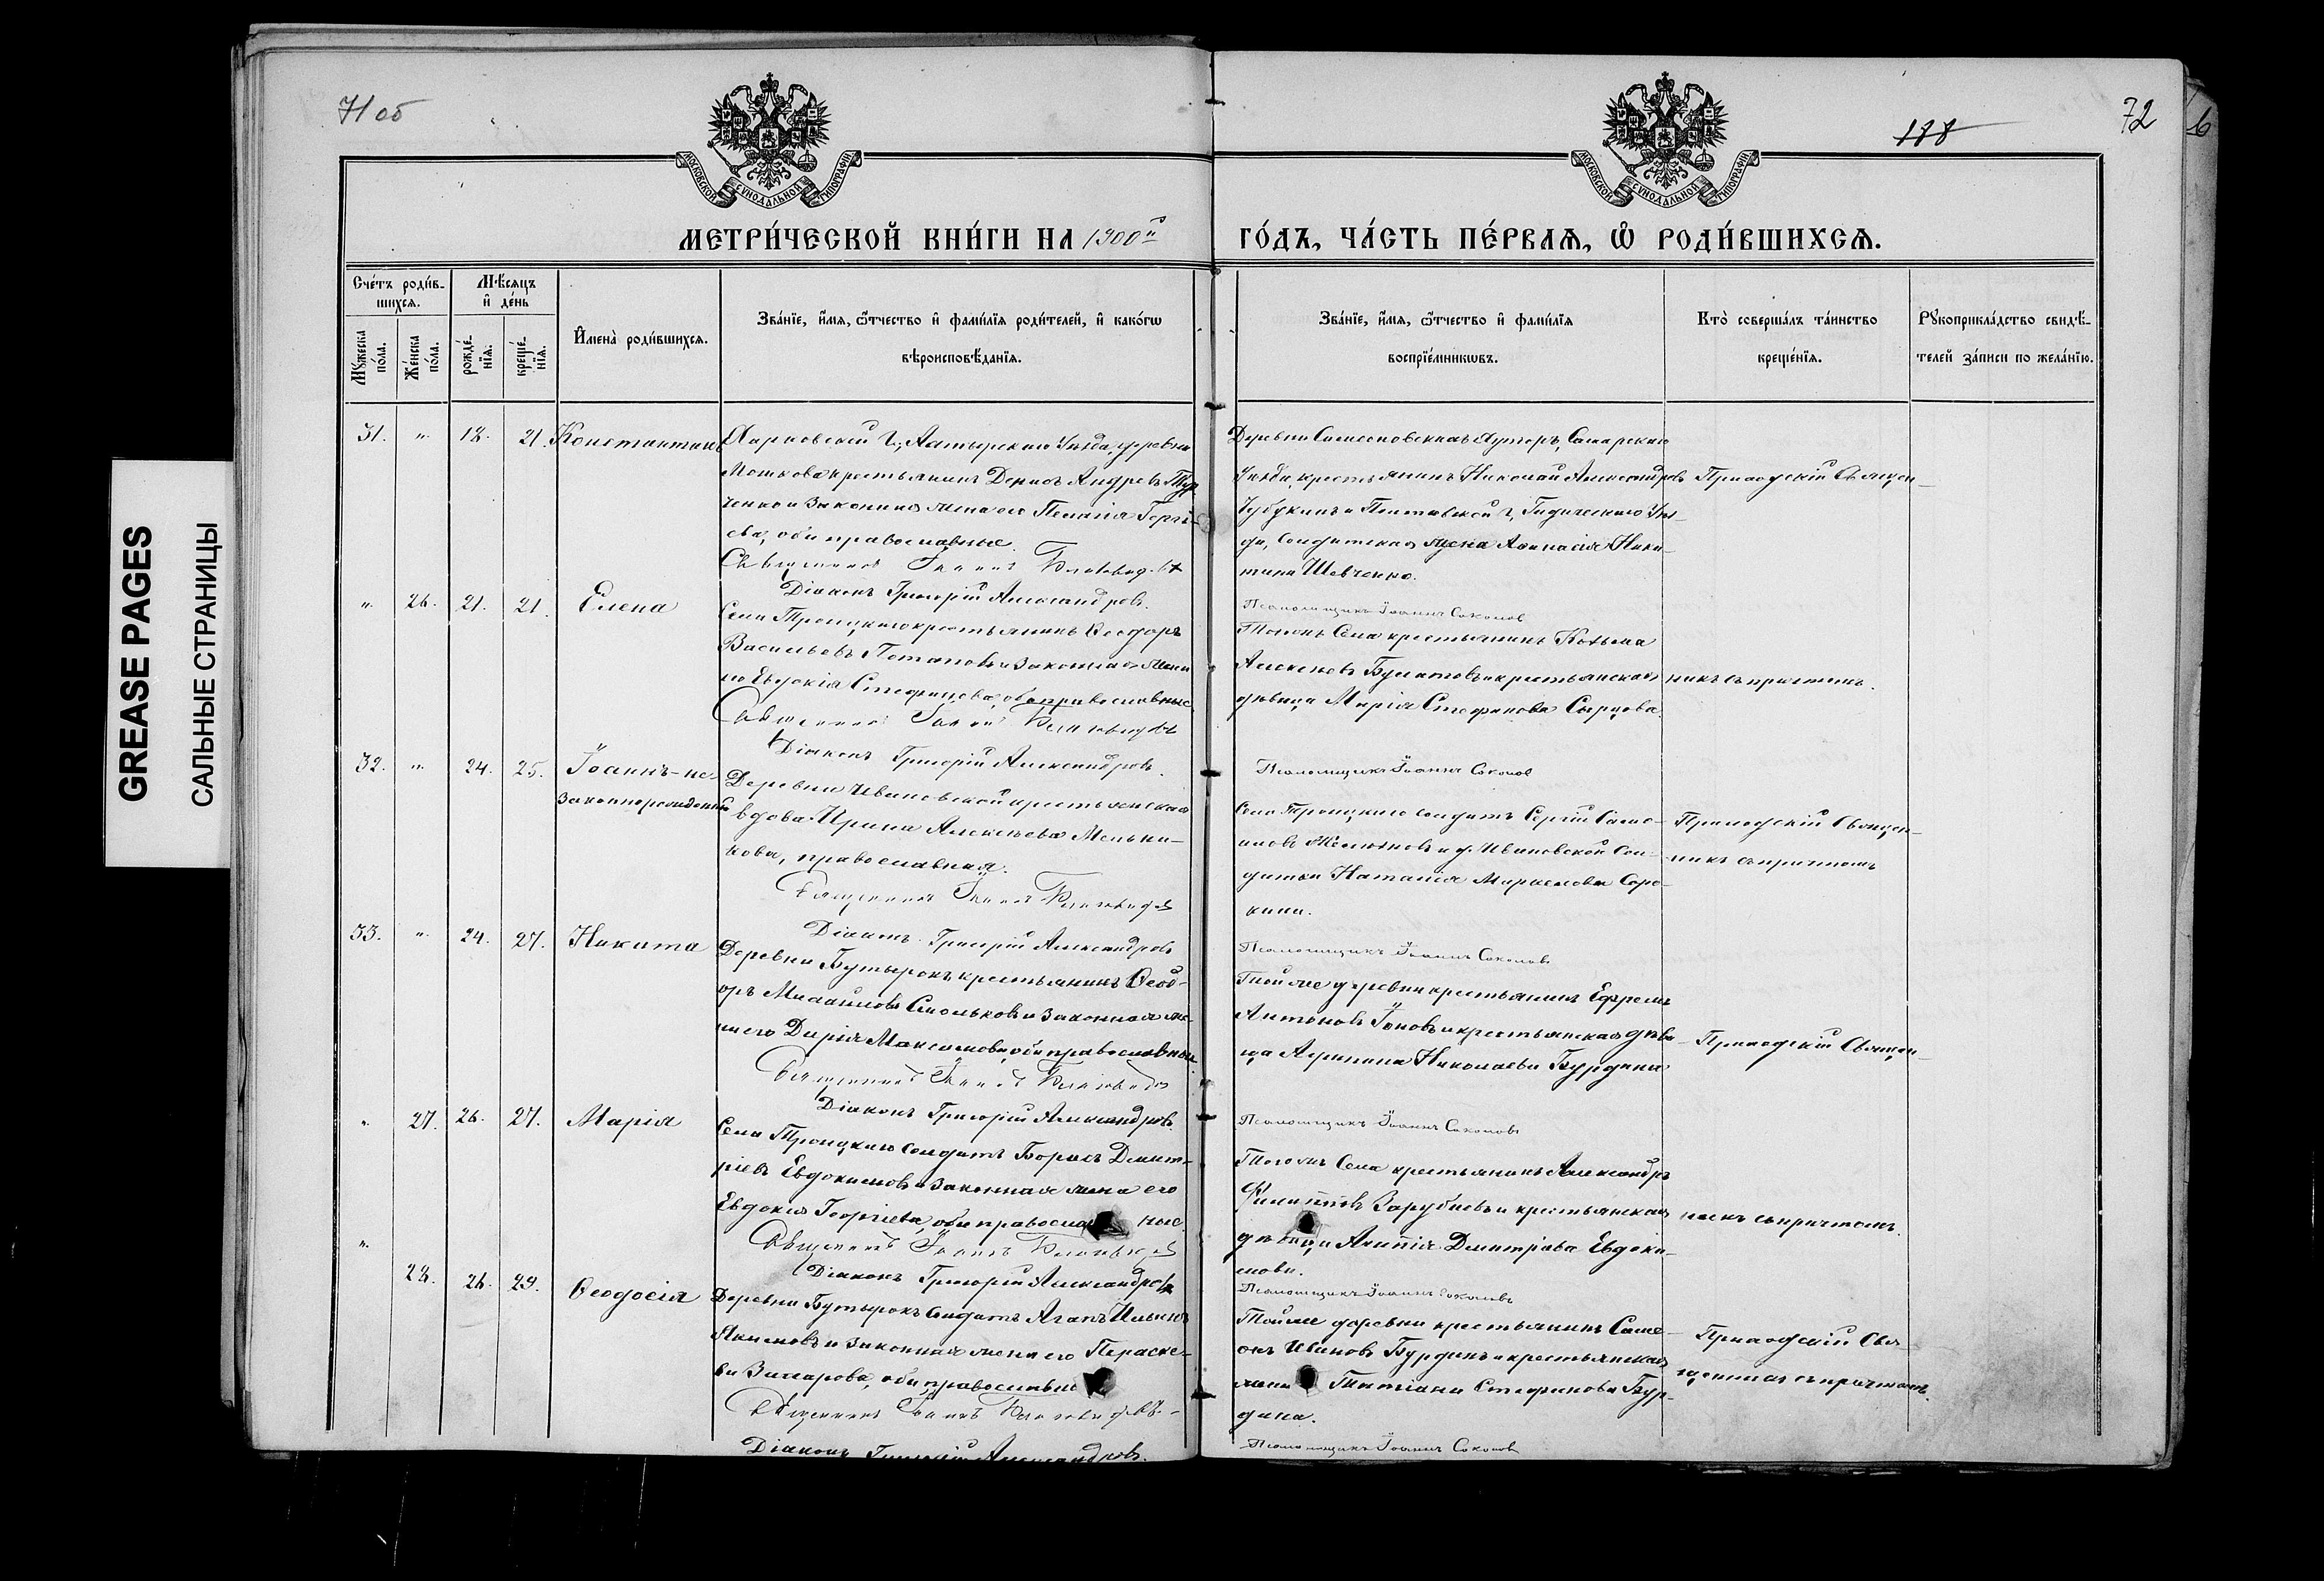 71 об
188
72
6
МОСКОВСКОЙ СУНОДАЛЬНОЙ ТИПОГРАФІИ
МОСКОВСКОЙ СУНОДАЛЬНОЙ ТИПОГРАФІИ
МЕТРИ́ЧЕСКОЙ КНИ́ГИ НА 1900й
ГО́ДЪ, ЧА́СТЬ ПЕ́РВАѦ, Ѡ҆ РОДИ́ВШИХСѦ.
Сче́тъ роди́в-
шихсѧ.
Мѣ́сѧцъ
и҆ де́нь
Мꙋ́жеска
по́ла.
Же́нска
по́ла.
рожде́-
нїѧ.
креще́-
нїѧ.
И҆мена̀ роди́вшихсѧ.
Зва́нїе, и҆́мѧ, ѻ҆́тчество и҆ фами́лїѧ роди́телей, и҆ како́гѡ
вѣроисповѣ́данїѧ.
Зва́нїе, и҆́мѧ, ѻ҆́тчество и҆ фами́лїѧ
воспрїе́мникѡвъ.
Кто̀ соверша́лъ та́инство
креще́нїѧ.
Рꙋкоприкла́дство свидѣ́-
телей за́писи по жела́нїю.
31. " 18. 21. Константинъ
Харьковской г., Ахтырскаго Уѣзда, деревни
крестьянинъ Андреевъ
и законная жена его Пелагія
оба православные.
Священникъ Іоаннъ
Діаконъ Григорій Александровъ.
Деревни Симеоновскихъ Хуторъ, Самарскаго
Уѣзда, крестьянинъ Николай Александровъ
и Полтавской г., Гадическаго Уѣ-
да, Солдатская жена Аѳанасія Ники-
тина Шевченко.
Псаломщикъ Іоаннъ Соколовъ
Приходскій Священ-
" 26. 21. 21. Елена
Села Троицкаго крестьянинъ Ѳеодоръ
Васильевъ Потаповъ и законная жена
его Евдокія Стефанова, оба православные
Священникъ Іоаннъ
Діаконъ Григорій Александровъ.
Тогожъ Села крестьянинъ Козьма
Алексѣевъ Булатовъ и крестьянская
дѣвица Марія Стефанова Сырцова.
Псаломщикъ Іоаннъ Соколовъ
никъ съ причтомъ.
32. " 24. 25. Іоаннъ-не-
законнорожденный
Деревни Ивановской крестьянская
вдова Ирина Алексѣева Мельни-
кова, православная.
Священникъ Іоаннъ
Діаконъ Григорій Александровъ
Села Троицкаго солдатъ Сергій Симе-
оновъ и д. Ивановской Сол-
датка Наталія Маркелова Соро-
кина.
Псаломщикъ Іоаннъ Соколовъ
Приходскій Священ-
никъ съ причтомъ
33. " 24. 27. Никита
Деревни Бутырокъ крестьянинъ Ѳеод-
оръ Михайловъ Смольковъ и законная же-
на его Дарія Максимова, оба православные.
Священникъ Іоаннъ
Діаконъ Григорій Александровъ.
Тойже деревни крестьянинъ Ефремъ
Антоновъ Іоновъ и крестьянская дѣви-
ца Агрипина Николаева Бурдина
Псаломщикъ Іоаннъ Соколовъ
Приходскій Священ-
" 27. 26. 27. Марія
Села Троицкаго Солдатъ Борисъ Димит-
ріевъ Евдокимовъ и законная жена его
Евдокия Георгіева, оба православные.
Священникъ Іоаннъ
Діаконъ Григорій Александровъ
Тогожъ Села крестьянинъ Александръ
Филипповъ Зарубневъ и крестьянская
дѣвица Димитріева Евдоки-
мова.
Псаломщикъ Іоаннъ Соколовъ
никъ съ причтомъ.
" 28. 26. 29. Ѳеодосія
Деревни Бутырокъ Солдатъ Агапъ Ильинъ
Якимовъ и законная жена его Параске-
ва Захарова, оба православны
Священникъ Іоаннъ
Діаконъ Григорій Александровъ.
Тойже деревни крестьянинъ Симе-
онъ Ивановъ Бурдинъ и крестьянская
жена Татіана Стефанова Бур-
дина.
Псаломщикъ Іоаннъ Соколовъ
Приходскій Свя-
щенникъ съ причтомъ.
GREASE PAGES
САЛЬНЫЕ СТРАНИЦЫ